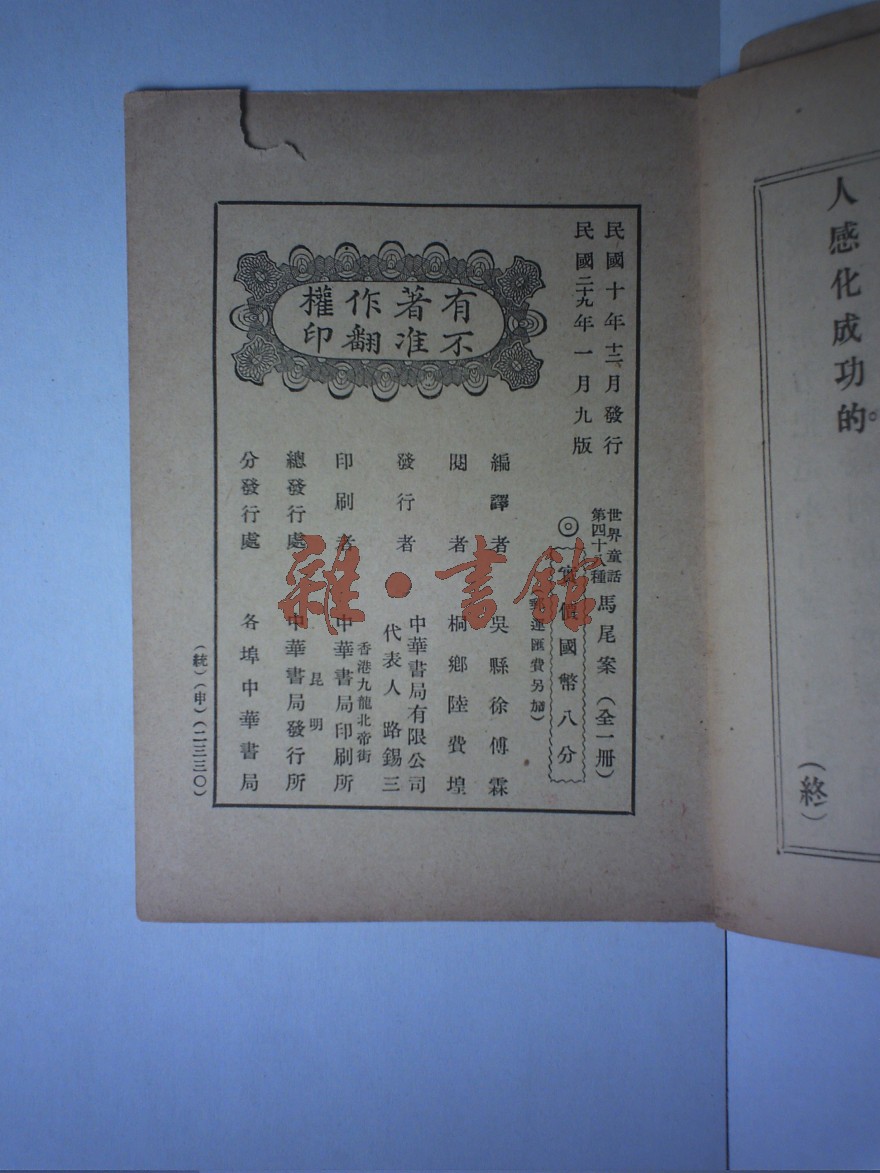 人感化成功的。
(終)
民國十年十二月發行
民國二十九年一月九版
世界童話
第四十八種
馬尾案(全一冊)
◎實價國幣八分
郵運匯費另加)
編譯者 吳縣徐傅霖
閱者 桐鄉陸費堭
發行者 中華書局有限公司
代表人 路錫三
印刷者 香港九龍北帝街
中華書局印刷所
總發行處 昆明
中華書局發行所
分發行處 各埠中華書局
有著作權
不准翻印
(統)(申)(二三三〇)
雜·書館